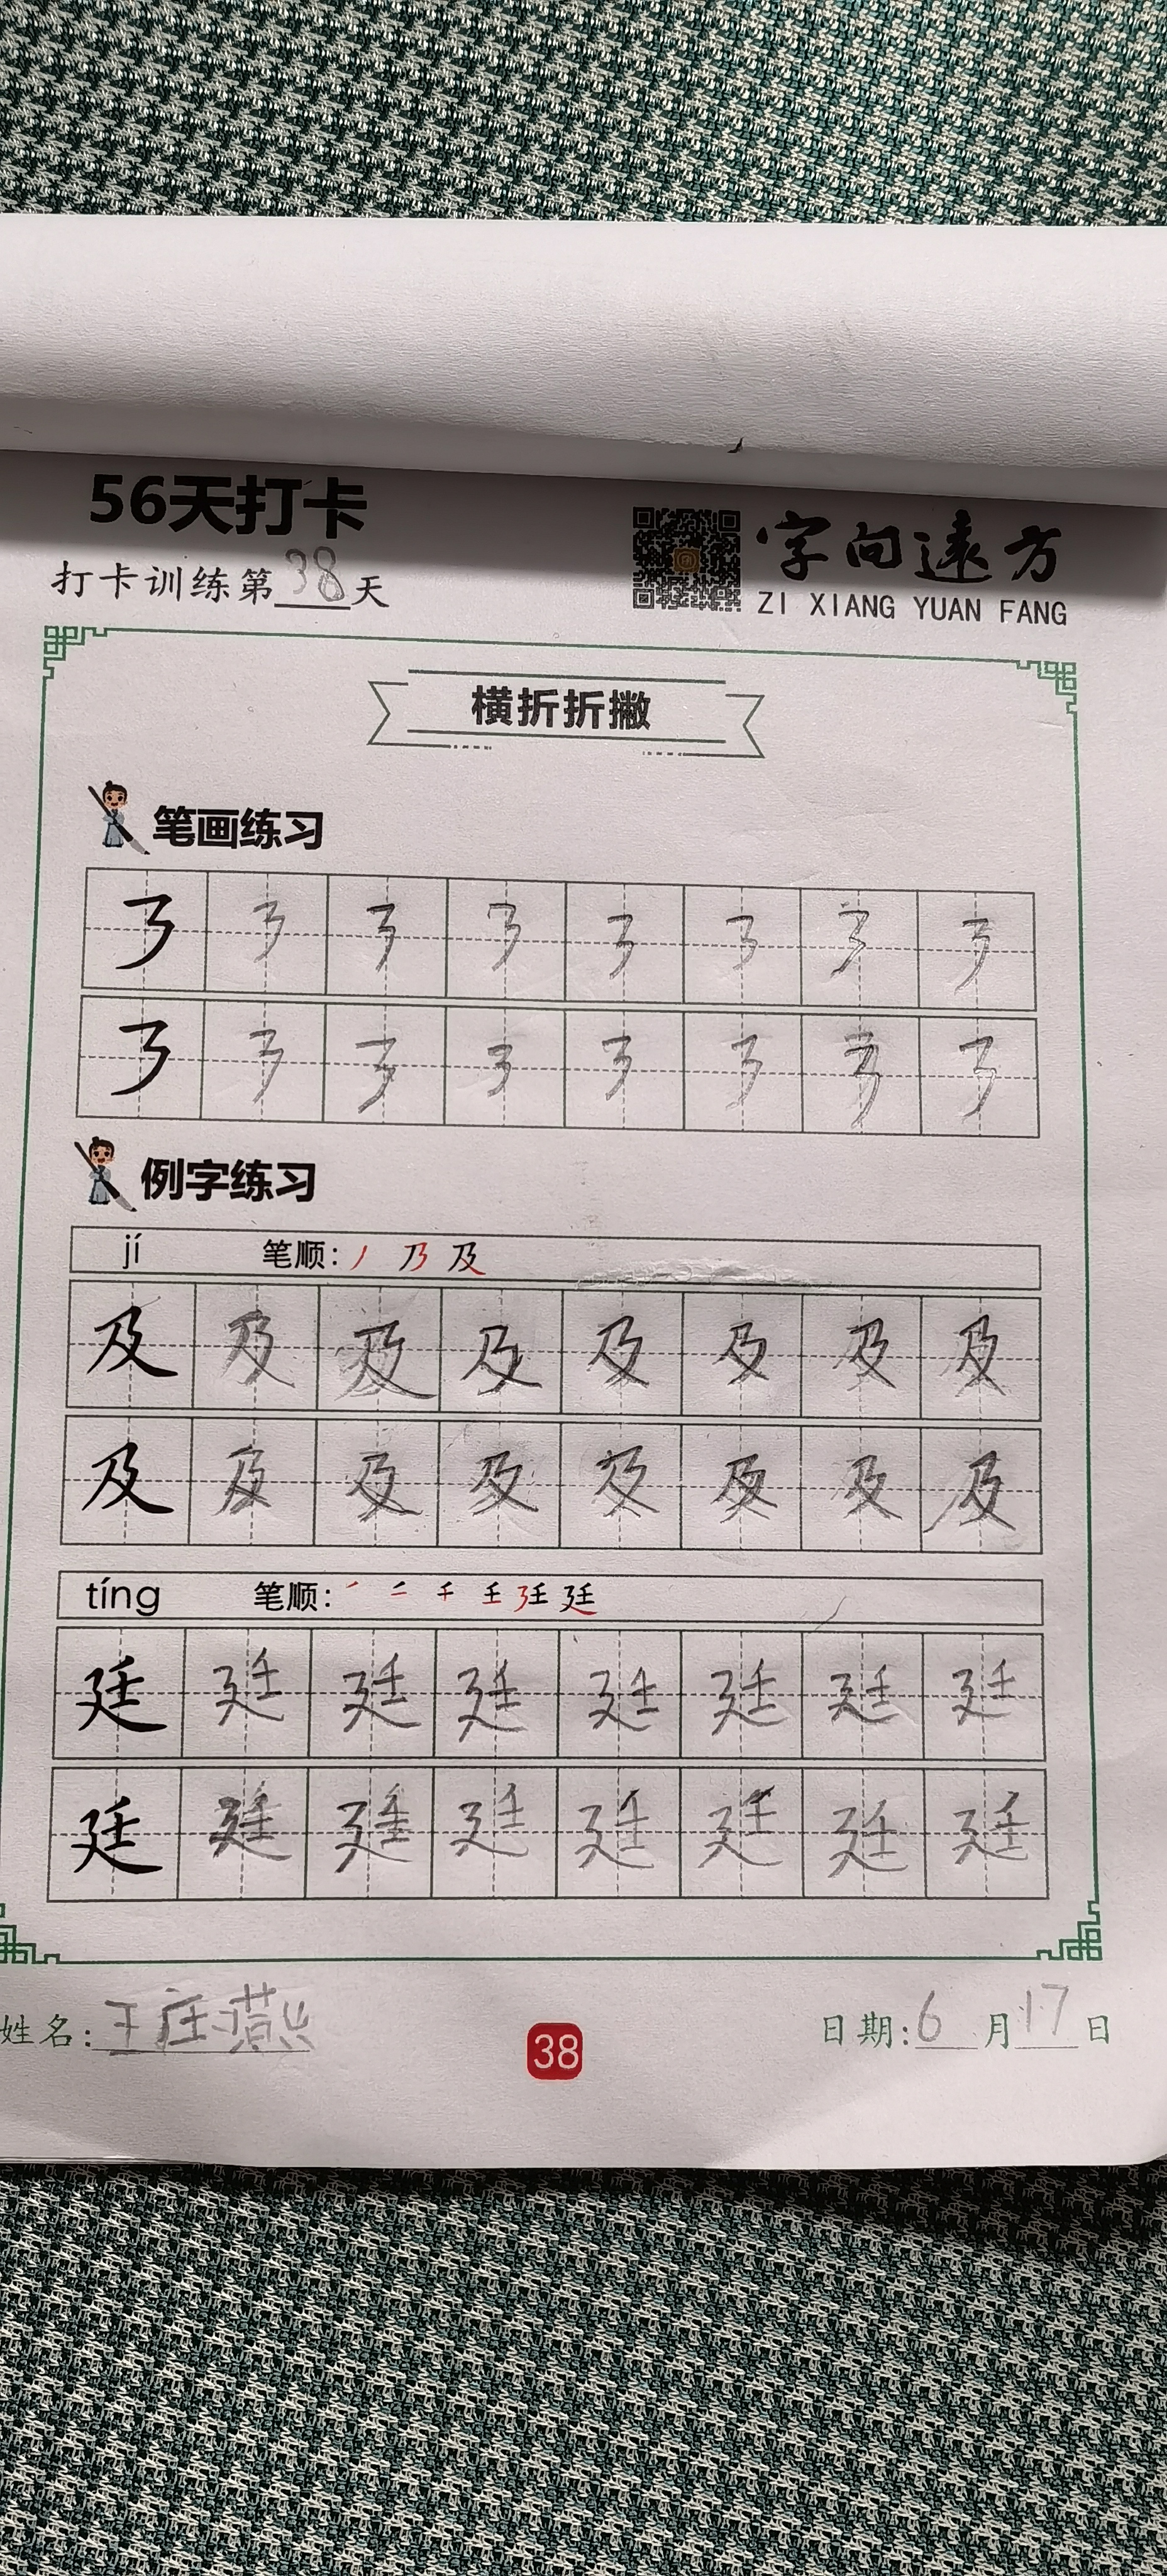 56天打卡
打卡训练第38天
字向遠方
ZI XIANG YUAN FANG
横折折撇
笔画练习
例字练习
jí 笔顺: 丿 乃 及
及 及 及 及 及 及 及 及
及 及 及 及 及 及 及 及
tíng 笔顺: 廷
廷 廷 廷 廷 廷 廷 廷 廷
廷 廷 廷 廷 廷 廷 廷 廷
姓名: 王
38
日期: 6月17日